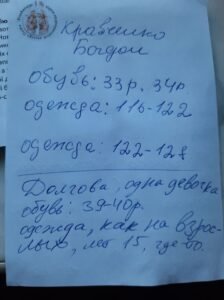 Кравченко
Богдан
обувь: 33р. 34р.
одежда: 116-122
одежда: 122-128
Долгова, одна девочка
обувь: 39-40р.
одежда, как на взрос-
лых, лет 15, где-то.